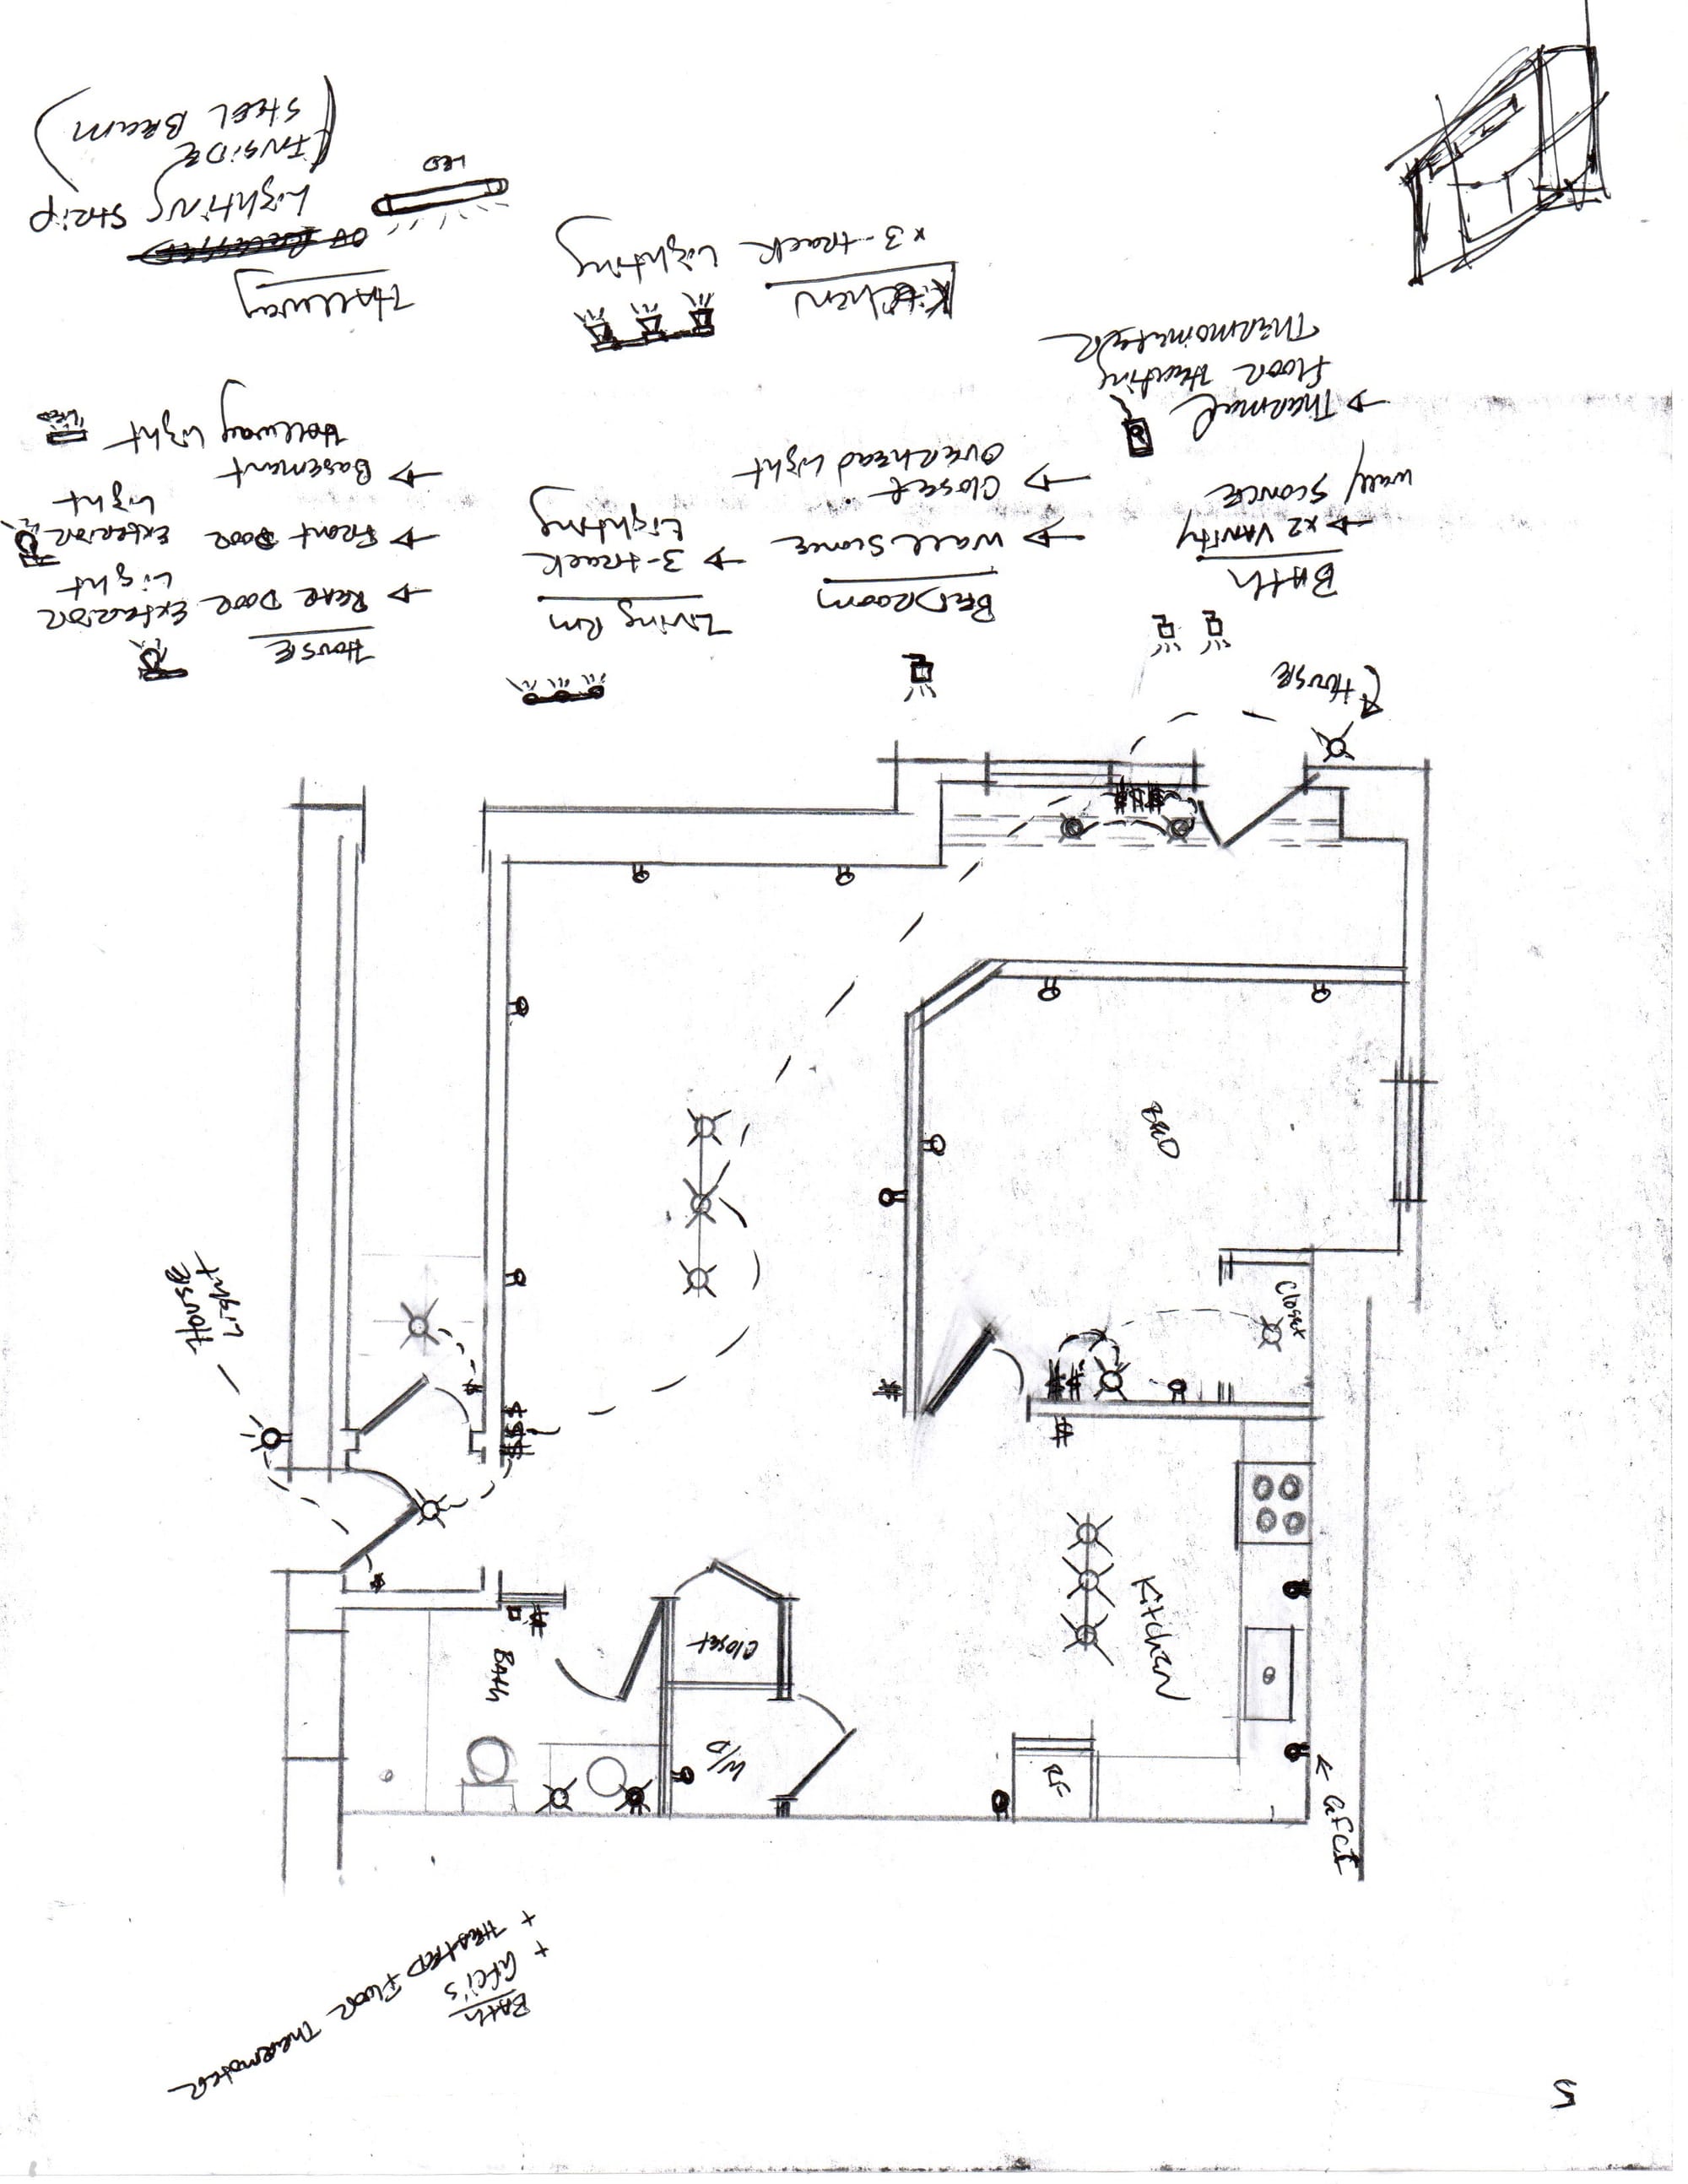 House
→ Rear Door Exterior Light
→ Front Door Exterior Light
→ Basement Hallway Light
LED
Living Rm
→ 3-track Lighting
Bedroom
→ Wall Sconce
→ Closet Overhead Light
Bath
→ x2 Vanity Wall Sconce
→ Thermal Floor Heating Thermometer
Hallway
Lighting Strip
(Inside Steel Beam)
LED
Kitchen
x 3-track Lighting
House
House Light
Closet
Kitchen
RF
← GFCI
W/D
Closet
Bath
$
$$$
$
$$
$
$
Bath
+ GFCI's
+ Heated Floor Thermoster
5